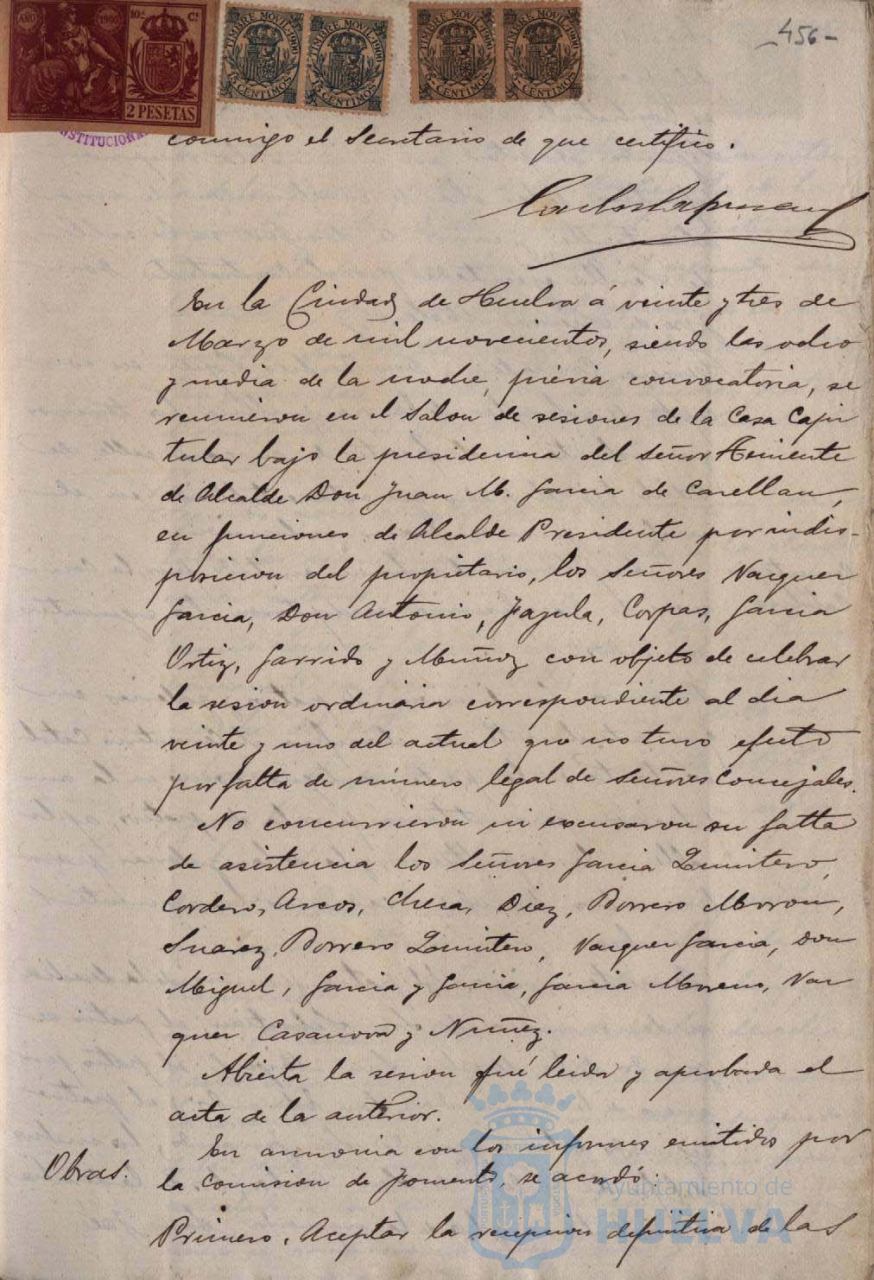 -456-
AÑO 1900 10ª Cl
2 PESETAS
TIMBRE MOVIL 1900
15 CENTIMOS
TIMBRE MOVIL 1900
15 CENTIMOS
TIMBRE MOVIL 1900
15 CENTIMOS
TIMBRE MOVIL 1900
15 CENTIMOS
NSTITUCIONA
conmigo el Secretario de que certifico.
En la Ciudad de Huelva á veinte y tres de
Marzo de mil novecientos, siendo las ocho
y media de la noche, prévia convocatoria, se
reunieron en el Salon de sesiones de la Casa Capi
tular bajo la presidencia del Señor Teniente
de Alcalde Don Juan M. Garcia de
en funciones de Alcalde Presidente por indis-
posicion del propietario, los Señores Vazquez
Garcia, Don Antonio, Jazula, Corpas, Garcia
Ortiz, Garrido y Muñoz con objeto de celebrar
la sesion ordinaria correspondiente al dia
veinte y uno del actual que no tuvo efecto
por falta de número legal de Señores Concejales.
No concurrieron ni excusaron su falta
de asistencia los Señores Garcia Quintero,
Cordero, Arcos, Checa, Diez, Borrero Morron,
Suarez, Borrero Quintero, Vazquez Garcia, Don
Miguel, Garcia y Garcia, Garcia Moreno, Vaz
quez Casanova y Nuñez.
Abierta la sesion fué leida y aprobada el
acta de la anterior.
Obras.
En armonia con los informes emitidos por
la Comision de Fomento, se acordó:
Primero. Aceptar la recepcion definitiva de las
Ayuntamiento de
HUELVA